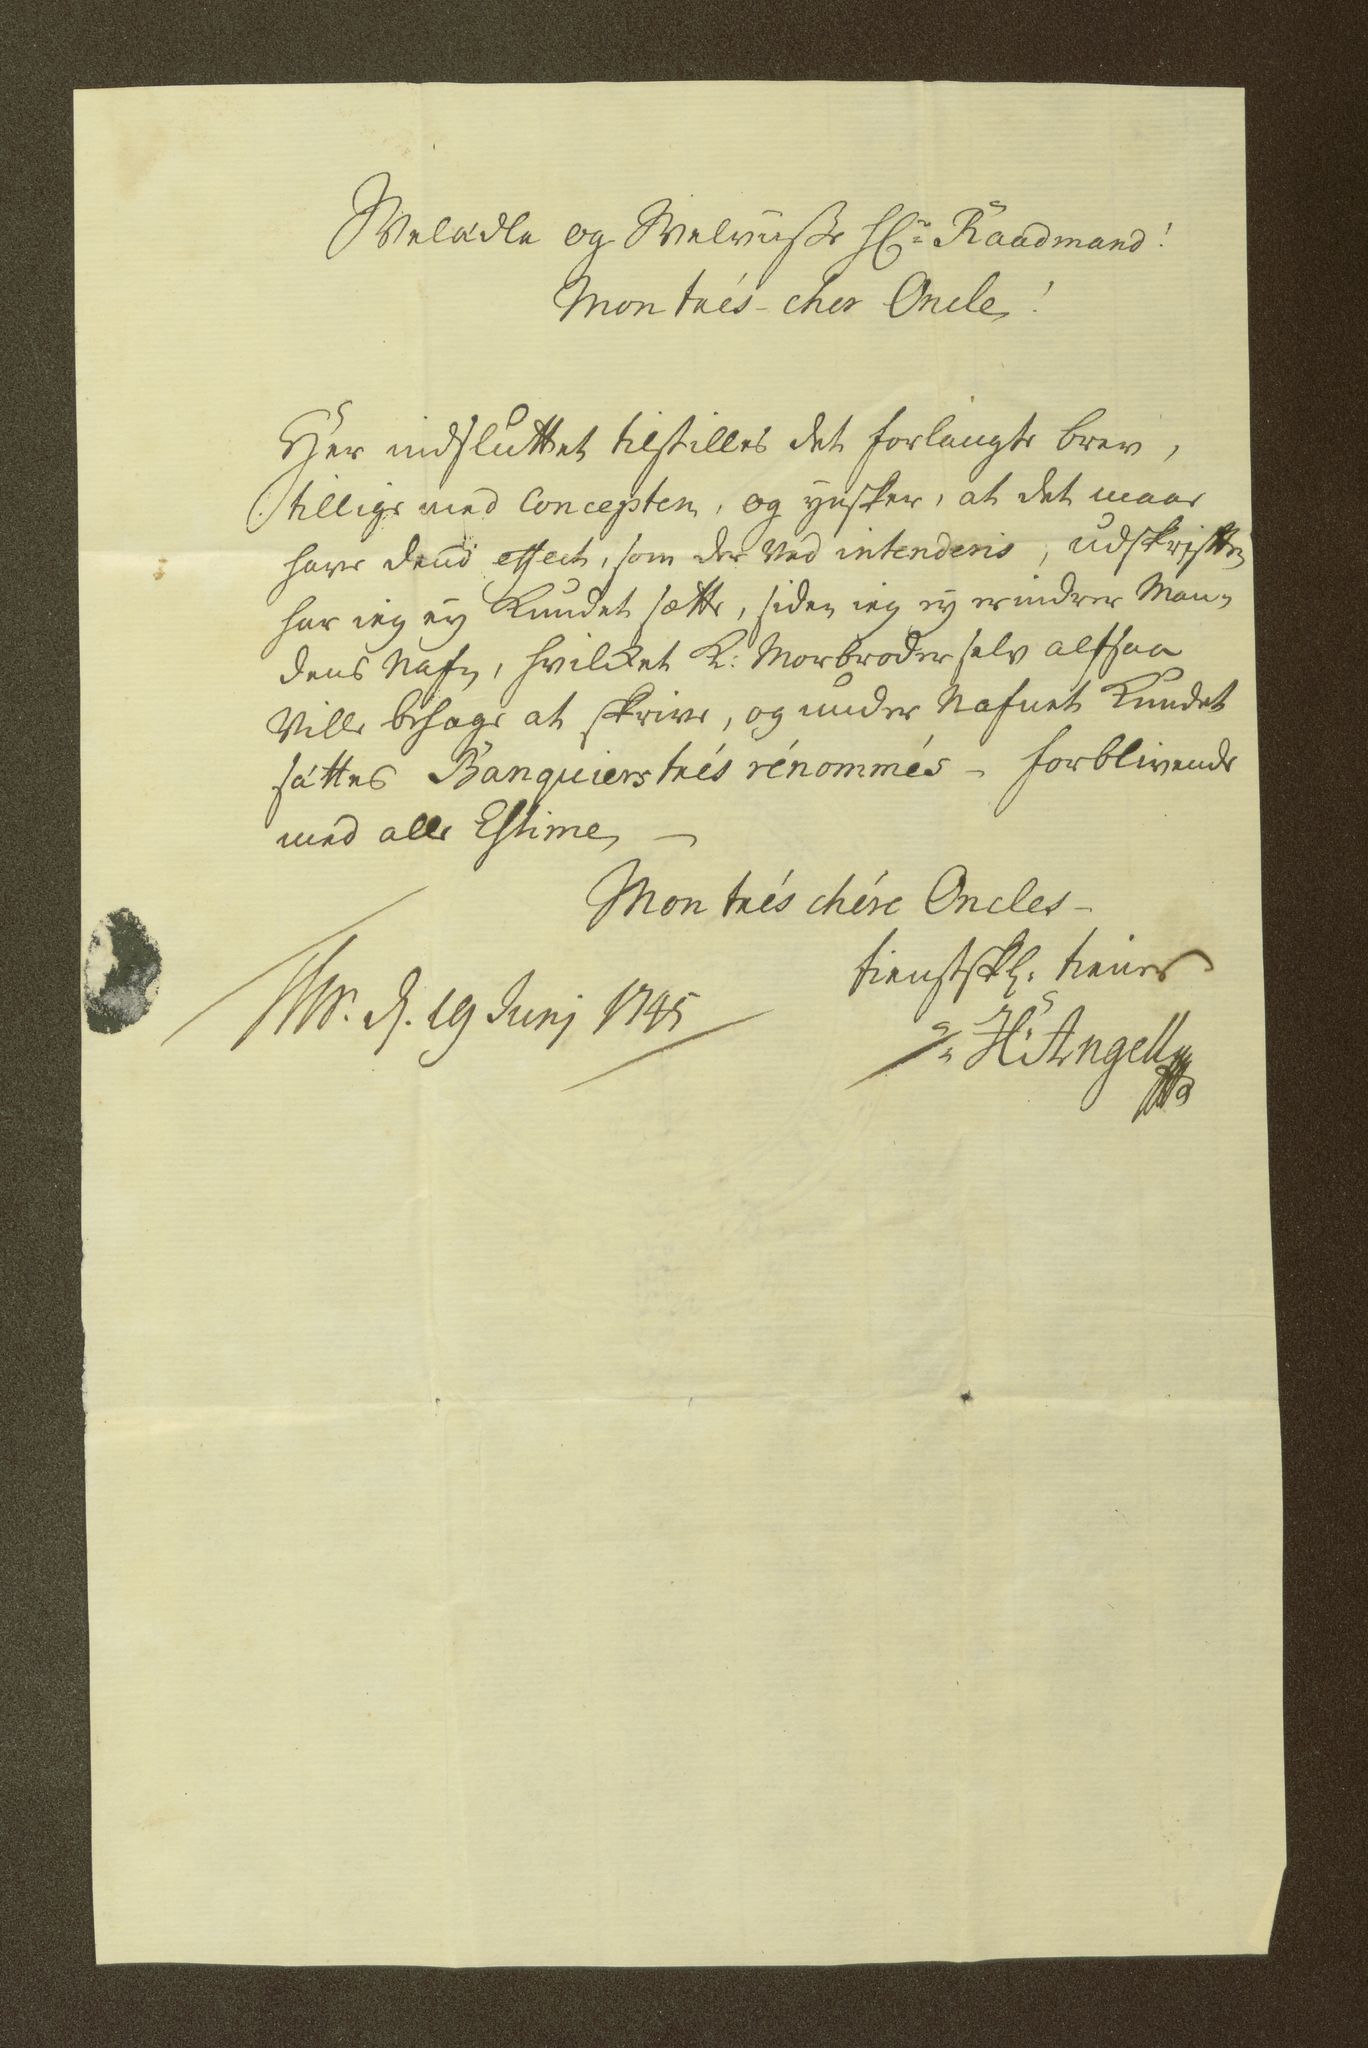 Welædle og Welviise Hr: Raadmand!
Mon trés-cher Oncle!
Her indsluttet tilstilles det forlangte brev,
tillige med Concepten, og ynsker, at det maae
have dend effect, som der ved intenderis, udskriften
har ieg ey Kundet sætte, siden ieg ey erindrer Man-
dens Nafn, hvilcket K: Morbroder selv altsaa
Ville behage at skrive, og under Nafnet Kundet
sættes Banquiers trés rénommés - forblivende
med alle Estime, -
Mon trés chére Oncles -
tienstskl: tiener
H: Angell
d. 19 Junj 1745